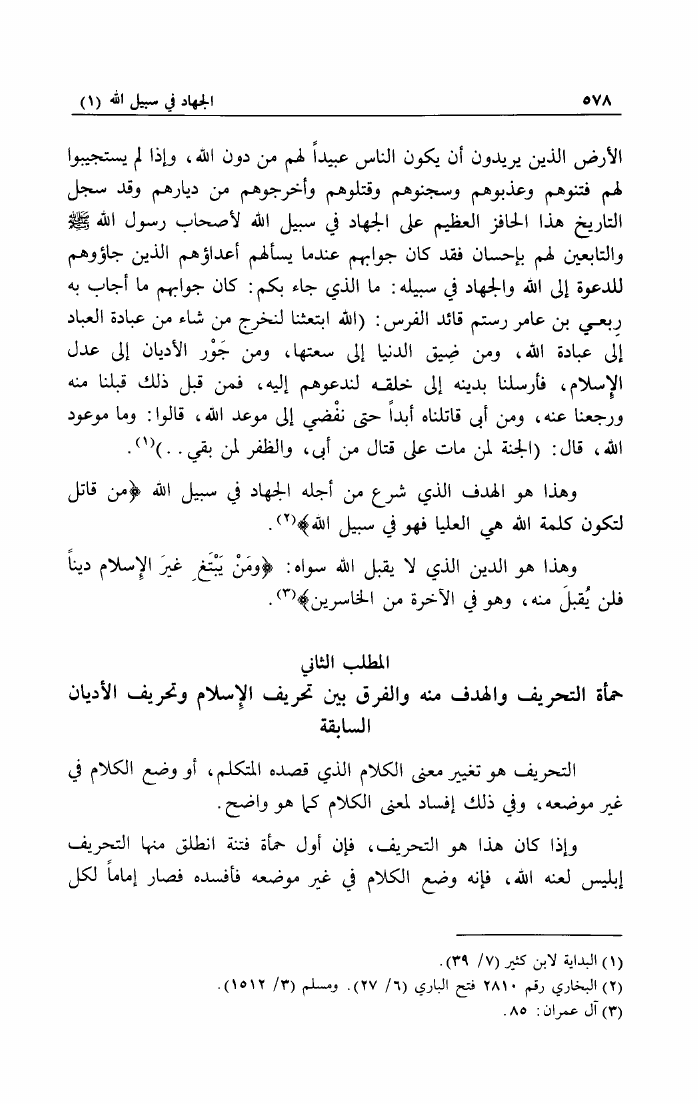 ٥٧٨ الجهاد في سبيل الله (١)
الأرض الذين يريدون أن يكون الناس عبيداً لهم من دون الله، وإذا لم يستجيبوا
لهم فتنوهم وعذبوهم وسجنوهم وقتلوهم وأخرجوهم من ديارهم وقد سجل
التاريخ هذا الحافز العظيم على الجهاد في سبيل الله لأصحاب رسول الله ﷺ
والتابعين لهم بإحسان فقد كان جوابهم عندما يسألهم أعداؤهم الذين جاؤوهم
للدعوة إلى الله والجهاد في سبيله: ما الذي جاء بكم: كان جوابهم ما أجاب به
رِبعي بن عامر رستم قائد الفرس: (الله ابتعثنا لنخرج من شاء من عبادة العباد
إلى عبادة الله، ومن ضِيق الدنيا إلى سعتها، ومن جَوْر الأديان إلى عدل
الإسلام، فأرسلنا بدينه إلى خلقه لندعوهم إليه، فمن قبل ذلك قبلنا منه
ورجعنا عنه، ومن أبى قاتلناه أبداً حتى نفْضي إلى موعد الله، قالوا: وما موعود
الله، قال: (الجنة لمن مات على قتال من أبى، والظفر لمن بقي..)(١).
وهذا هو الهدف الذي شرع من أجله الجهاد في سبيل الله ﴿من قاتل
لتكون كلمة الله هي العليا فهو في سبيل الله﴾(٢).
وهذا هو الدين الذي لا يقبل الله سواه: ﴿ومَنْ يَبْتَغِ غيرَ الإسلام ديناً
فلن يُقبلَ منه، وهو في الآخرة من الخاسرين﴾(٣).
المطلب الثاني
حمأة التحريف والهدف منه والفرق بين تحريف الإسلام وتحريف الأديان
السابقة
التحريف هو تغيير معنى الكلام الذي قصده المتكلم، أو وضع الكلام في
غير موضعه، وفي ذلك إفساد لمعنى الكلام كما هو واضح.
وإذا كان هذا هو التحريف، فإن أول حمأة فتنة انطلق منها التحريف
إبليس لعنه الله، فإنه وضع الكلام في غير موضعه فأفسده فصار إماماً لكل
(١) البداية لابن كثير (٧/ ٣٩).
(٢) البخاري رقم ٢٨١٠ فتح الباري (٦/ ٢٧). ومسلم (٣/ ١٥١٢).
(٣) آل عمران: ٨٥.